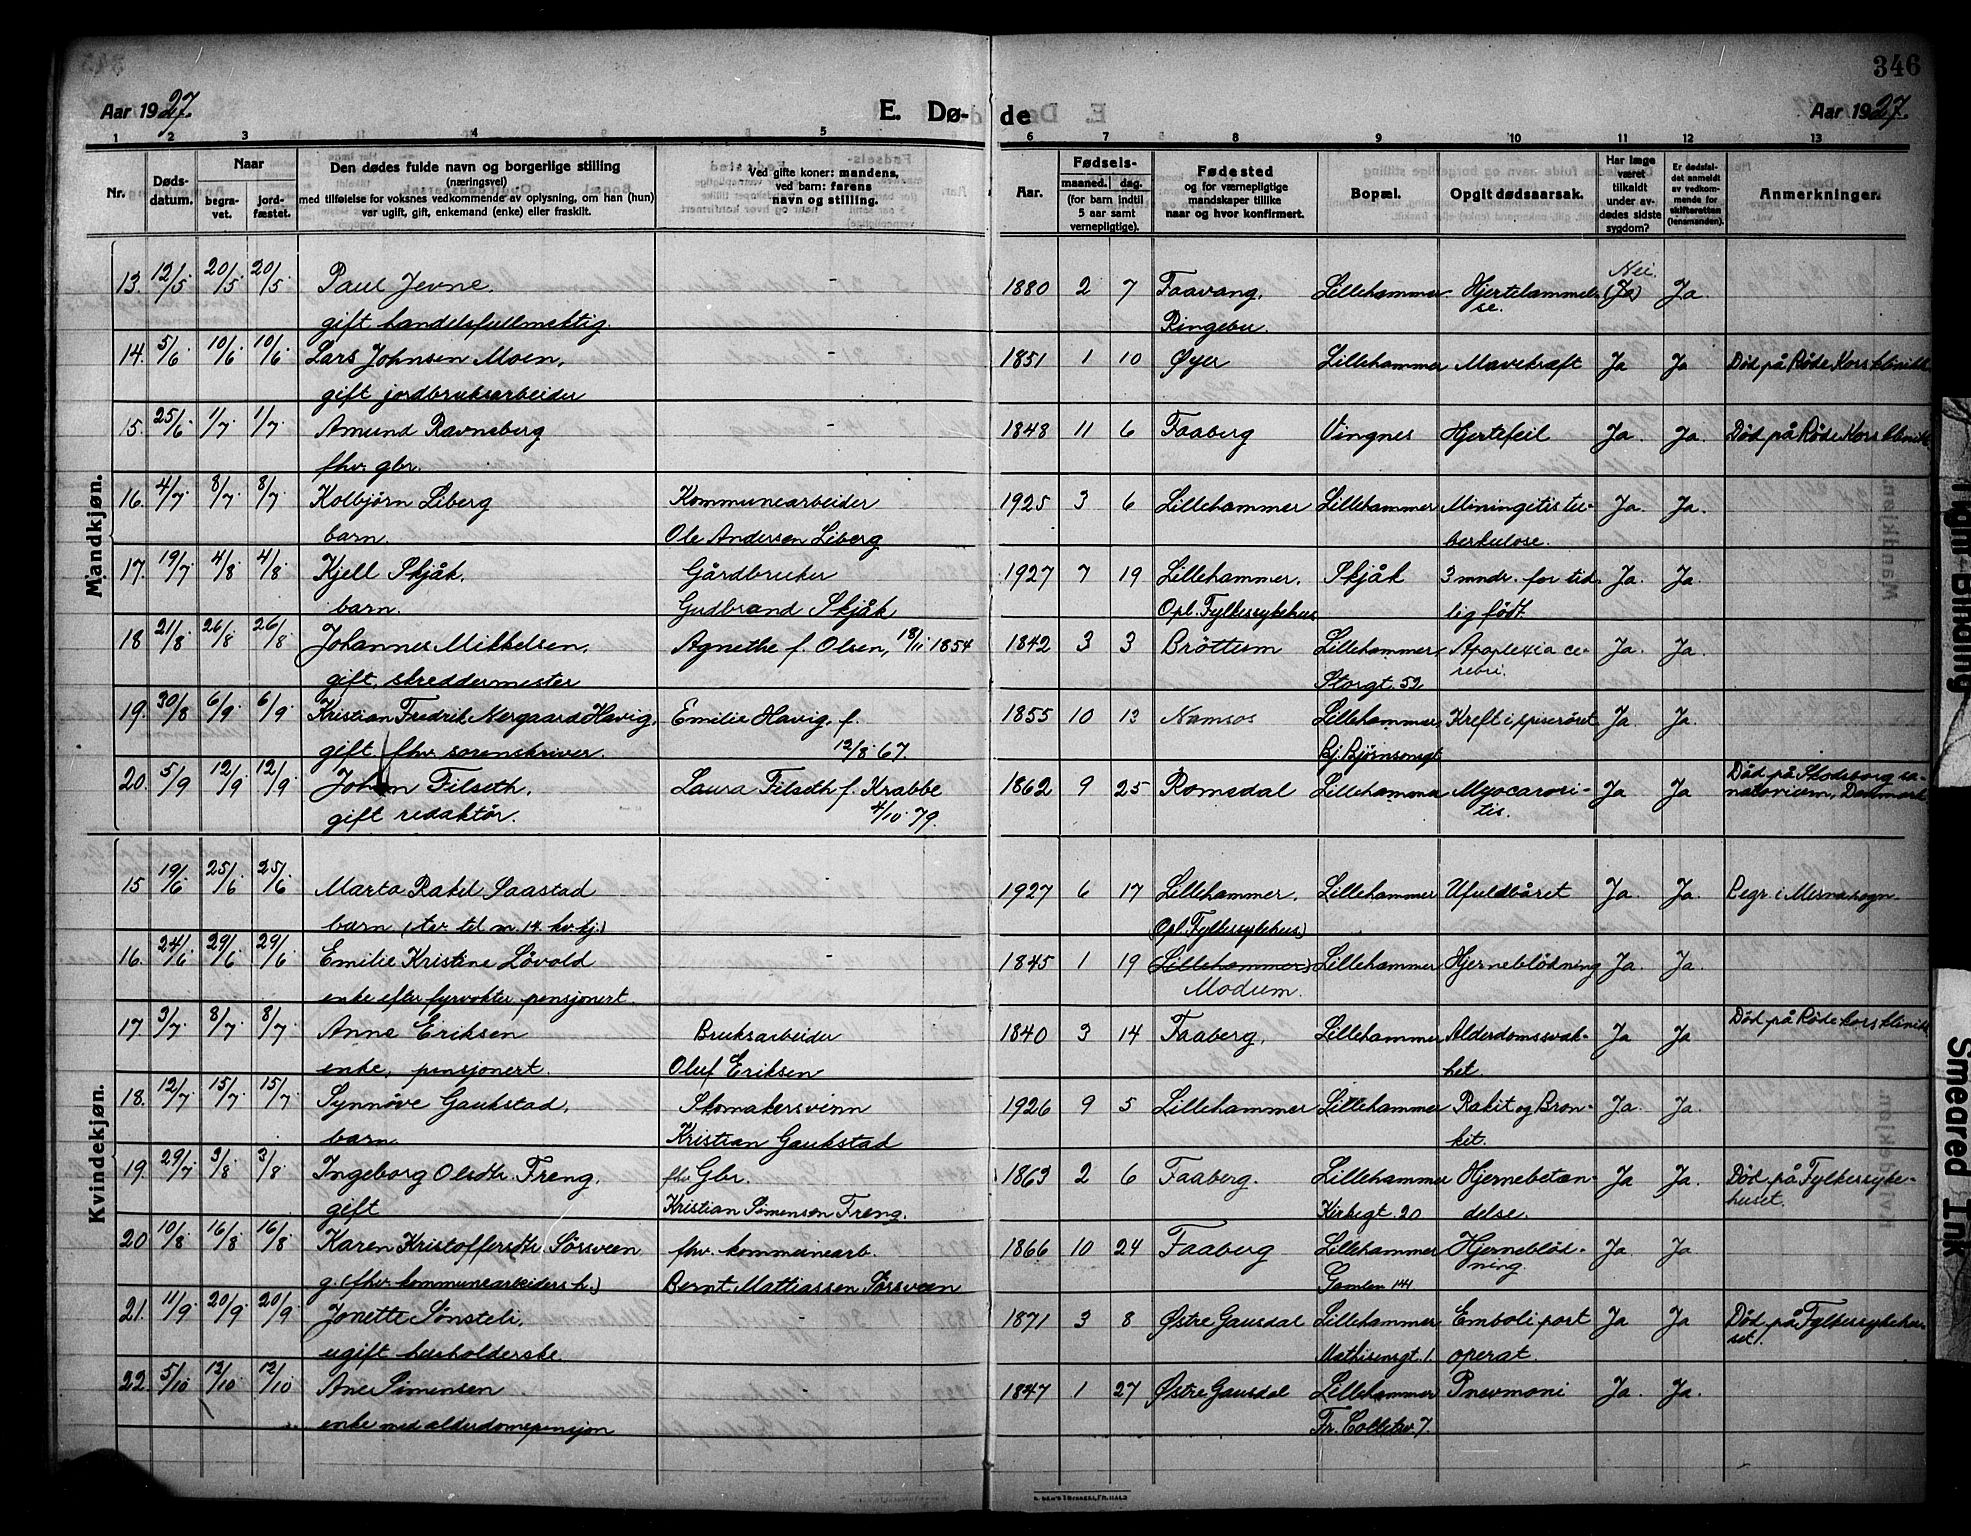 346
Aar 1927.
E. Dø-
de
Aar 1927.
1 2 3 4 5 6 7 8 9 10 11 12 13
Nr.
Døds-
datum.
Naar
begra-
vet.
jord-
fæstet.
Den dødes fulde navn og borgerlige stilling
(næringsvei)
med tilføielse for voksnes vedkommende av oplysning, om han (hun)
var ugift, gift, enkemand (enke) eller fraskilt.
Ved gifte koner: mandens,
ved barn: farens
navn og stilling.
Aar.
Fødsels-
maaned. dag.
(for barn indtil
5 aar samt
vernepligtige).
Fødested
og for værnepligtige
mandskaper tillike
naar og hvor konfirmert.
Bopæl.
Opgit dødsaarsak.
Har læge
været
tilkaldt
under av-
dødes sidste
sygdom?
Er dødsfal-
det anmeldt
av vedkom-
mende for
skifteretten
(lensmanden).
Anmerkninger.
Mandkjøn.
13. 12/5 20/5 20/5 Paul Jevne, - 1880 2 7 Faavang, Lillehammer. Hjertelammel- Nei. (Ja) Ja.
gift handelsfullmektig. Ringebu. se.
14. 5/6 10/6 10/6 Lars Johnsen Moen, 1851 1 10 Øyer Lillehammer Mavekræft Ja Ja Død på Røde Kors klinikk
gift jordbruksarbeider
15. 25/6 1/7 1/7 Amund Ravnsberg - 1848 11 6 Faaberg Vingnes Hjertefeil Ja. Ja. Død på Røde Kors klinikk
fhv. gbr.
16. 4/7 8/7 8/7 Kolbjørn Liberg Kommunearbeider 1925 3 6 Lillehammer Lillehammer Miningitis tu- Ja. Ja.
barn. Ole Andersen Liberg berkulose.
17. 19/7 4/8 4/8 Kjell Skjåk, Gårdbruker 1927 7 19 Lillehammer, Skjåk 3 mndr. for tid- Ja. Ja.
barn. Gudbrand Skjåk Opl. Fylkessykehus lig født.
18 21/8 26/8 26/8 Johannes Mikkelsen, Agnethe f. Olsen, 18/11 1854 1842 3 3 Brøttum Lillehammer, Apoplexia ce- Ja. Ja.
gift, skreddermester Storgt. 52 rebri.
19. 30/8 6/9 6/9 Kristian Fredrik Nergaard Havig, Emilie Havig, f. 1855 10 13 Namsos Lillehammer, Kreft i spiserøret Ja. Ja.
gift, fhv. sorenskriver. 12/8 67. Bj. Bjørnsonsgt.
20. 5/9 12/9 12/9 Johan Filseth, Laura Filseth f. Krabbe 1862 9 25 Romsdal Lillehammer Myocarosi- Ja Ja Død på Skodsborg sa-
gift redaktør. 4/10 79. tis. natorium, Danmark
Kvindekjøn.
15 19/6 25/6 25/6 Marta Rakel Saastad 1927 6 17 Lillehammer, Lillehammer Ufuldbåret Ja. Ja. Begr. i Mesna sogn.
barn (tv. til nr. 14. kv. kj.) (Opl. Fylkessykehus)
16. 24/6 29/6 29/6 Emilie Kristine Løvold - 1845 1 19 (Lillehammer) Lillehammer Hjerneblødning Ja. Ja.
enke efter fyrvokter pensjonert. Modum.
17. 3/7 8/7 8/7 Anne Eriksen Bruksarbeider 1840 3 14 Faaberg, Lillehammer Alderdomssvak- Ja Ja Død på Røde Kors klinikk
enke, pensjonert. Oluf Eriksen het.
18. 12/7 15/7 15/7 Synnøve Gaukstad, Skomakersvenn 1926 9 5 Lillehammer Lillehammer Rakit og Bron- Ja. Ja.
barn Kristian Gaukstad kit.
19. 29/7 3/8 3/8 Ingeborg Olsdtr. Freng, fhv. Gbr. 1863 2 6 Faaberg. Lillehammer Hjernebetæn- Ja Ja Død på Fylkessyke-
gift Kristian Simensen Freng. Kirkegt. 20 delse. huset.
20 10/8 16/8 16/8 Karen Kristoffersdtr. Sørsveen fhv. kommunearb. 1866 10 24 Faaberg Lillehammer Hjerneblød- Ja Ja
g. (fhv. kommunearbeiders h.) Bernt Mattiassen Sørsveen Gamlev. 141 ning.
21. 11/9 20/9 20/9 Jonette Sønsteli, - 1871 3 8 Østre Gausdal Lillehammer Emboli post Ja Ja Død på Fylkessykehu-
ugift husholderske. Mathisensgt. 1. operat. set.
22 5/10 12/10 12/10 Ane Simensen 1847 1 27 Østre Gausdal Lillehammer Pneumoni Ja. Ja.
enke med alderdomspensjon Fr. Colletsv. 7.
Tight Binding
Smeared Ink